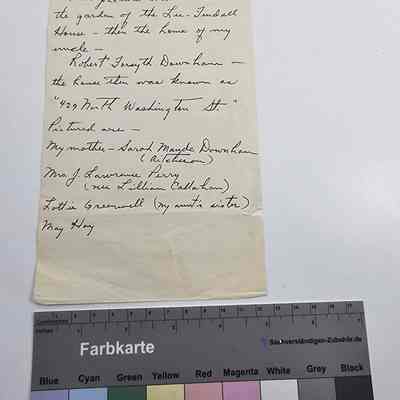 the garden of the Lee-Fendall
House - then the home of my
uncle -
Robert Forsyth Downham -
the house then was known as
"429 North Washington St."
Pictured are -
My mother - Sarah Mayde Downham
(Aitcheson)
Mrs. J. Lawrence Perry
(nee Lillian Callahan)
Lottie Greenwell (my aunt's sister)
May Hoy
Farbkarte
Sachverständigen-Zubehör.de
Blue Cyan Green Yellow Red Magenta White Grey Black